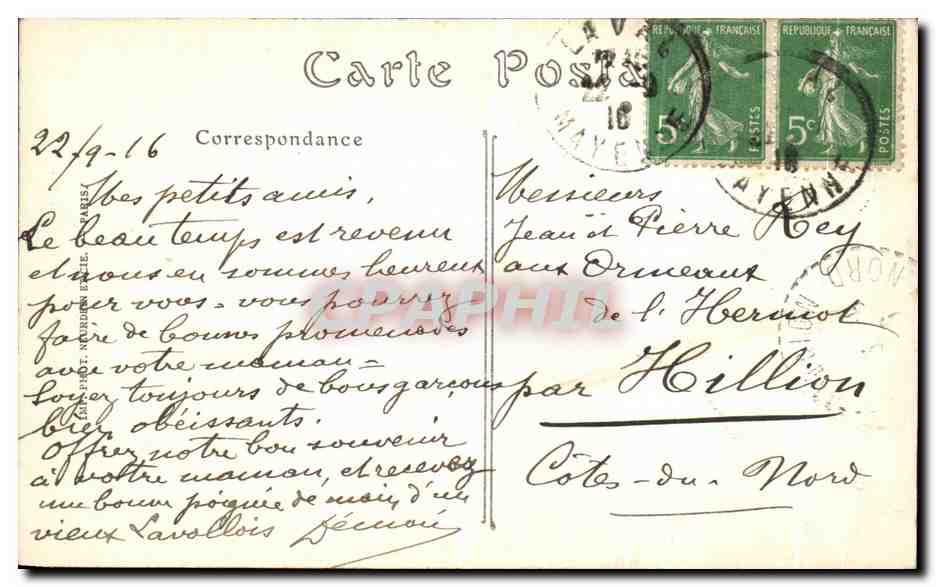 Carte Posta
Correspondance
22/9-16
Mes petits amis,
Le beau temps est revenu
et nous en sommes heureux
pour vous - vous pourrez
faire de bonnes promenades
avec votre maman -
Soyez toujours de bons garçons
bien obéissants.
Offrez notre bon souvenir
à votre maman, et recevez
une bonne poignée de main d'un
vieux Lavallois
IMP. PHOT. NEURDEIN ET CIE. PARIS
REPUBLIQUE FRANÇAISE
5c
POSTES
REPUBLIQUE FRANÇAISE
5c
POSTES
LAVAL
22
16
MAYENNE
16
MAYENN
Messieurs
Jean et Pierre Rey
aux Ormeaux
de l'Hermot
par Hillion
Côtes-du-Nord
HILLION
NORD
CPAPHIL